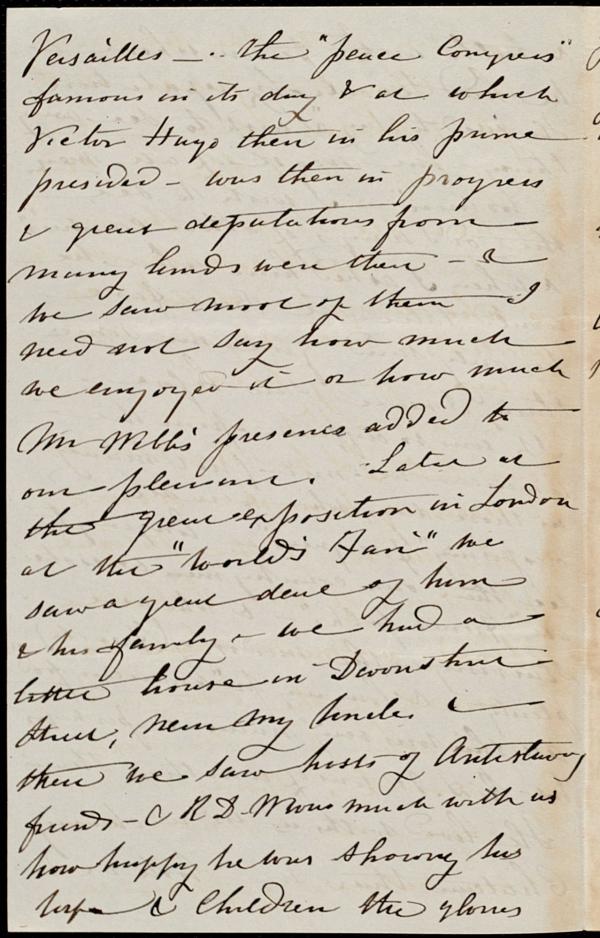 Versailles — .. the "peace Congress"
famous in its day & at which
Victor Hugo then in his prime
presided – was then in progress
& great deputations from
many lands were there – &
we saw most of them I
need not say how much
we enjoyed it or how much
Mr Webb's presence added to
our pleasure. Later at
the great exposition in London
at the "World's Fair" we
saw a great deal of him
& his family – we had a
little house in Devonshire
Street, near my Uncle &
there we saw hosts of Antislavery
friends – & R D W was much with us
how happy he was showing his
wife & Children the glories